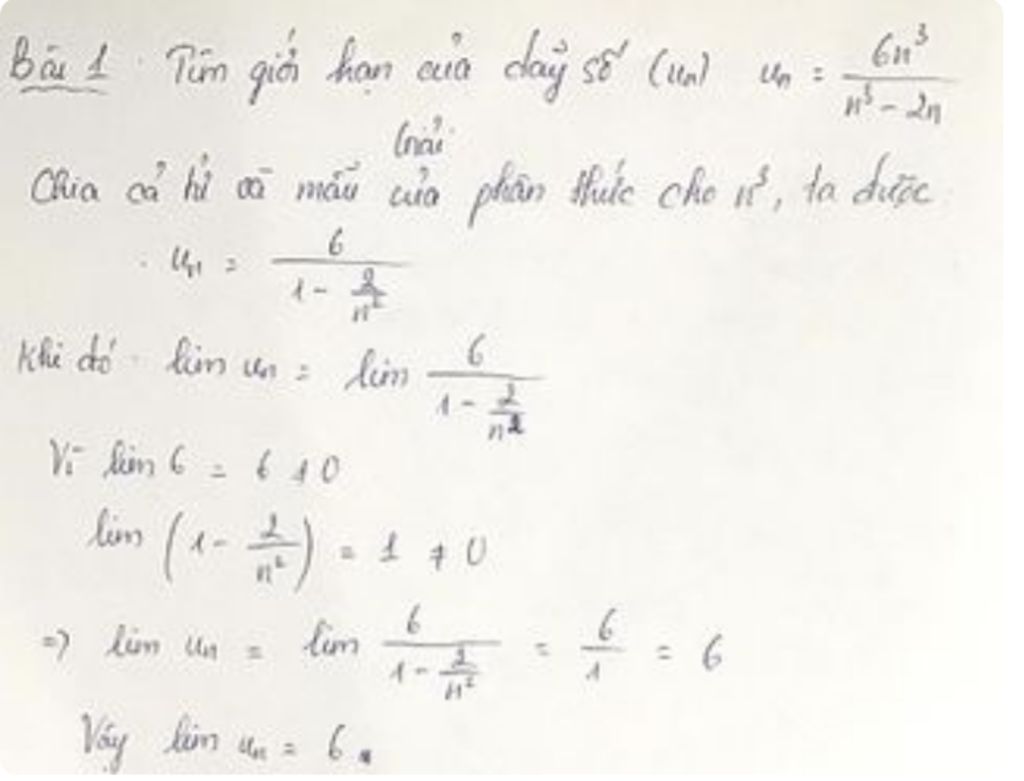 Bài 1 Tìm giới hạn của dãy số (un) un = 6n³/(n³ - 2n)
Giải
Chia cả tử và mẫu của phân thức cho n³, ta được
un = 6/(1 - 2/n²)
Khi đó lim un = lim 6/(1 - 2/n²)
Vì lim 6 = 6 ≠ 0
lim (1 - 2/n²) = 1 ≠ 0
=> lim un = lim 6/(1 - 2/n²) = 6/1 = 6
Vậy lim un = 6.